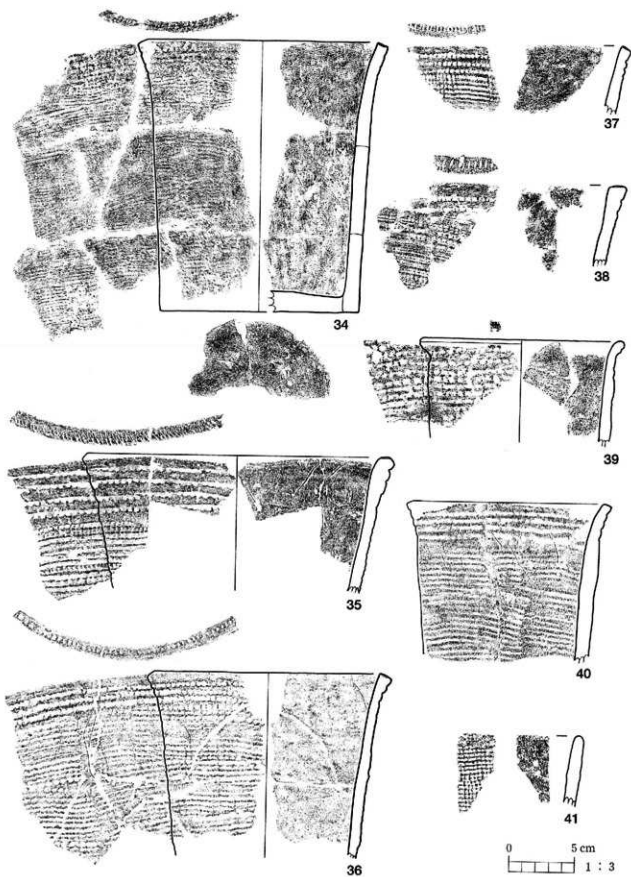 37
38
34
39
35
40
36
41
0 5 cm
1 : 3